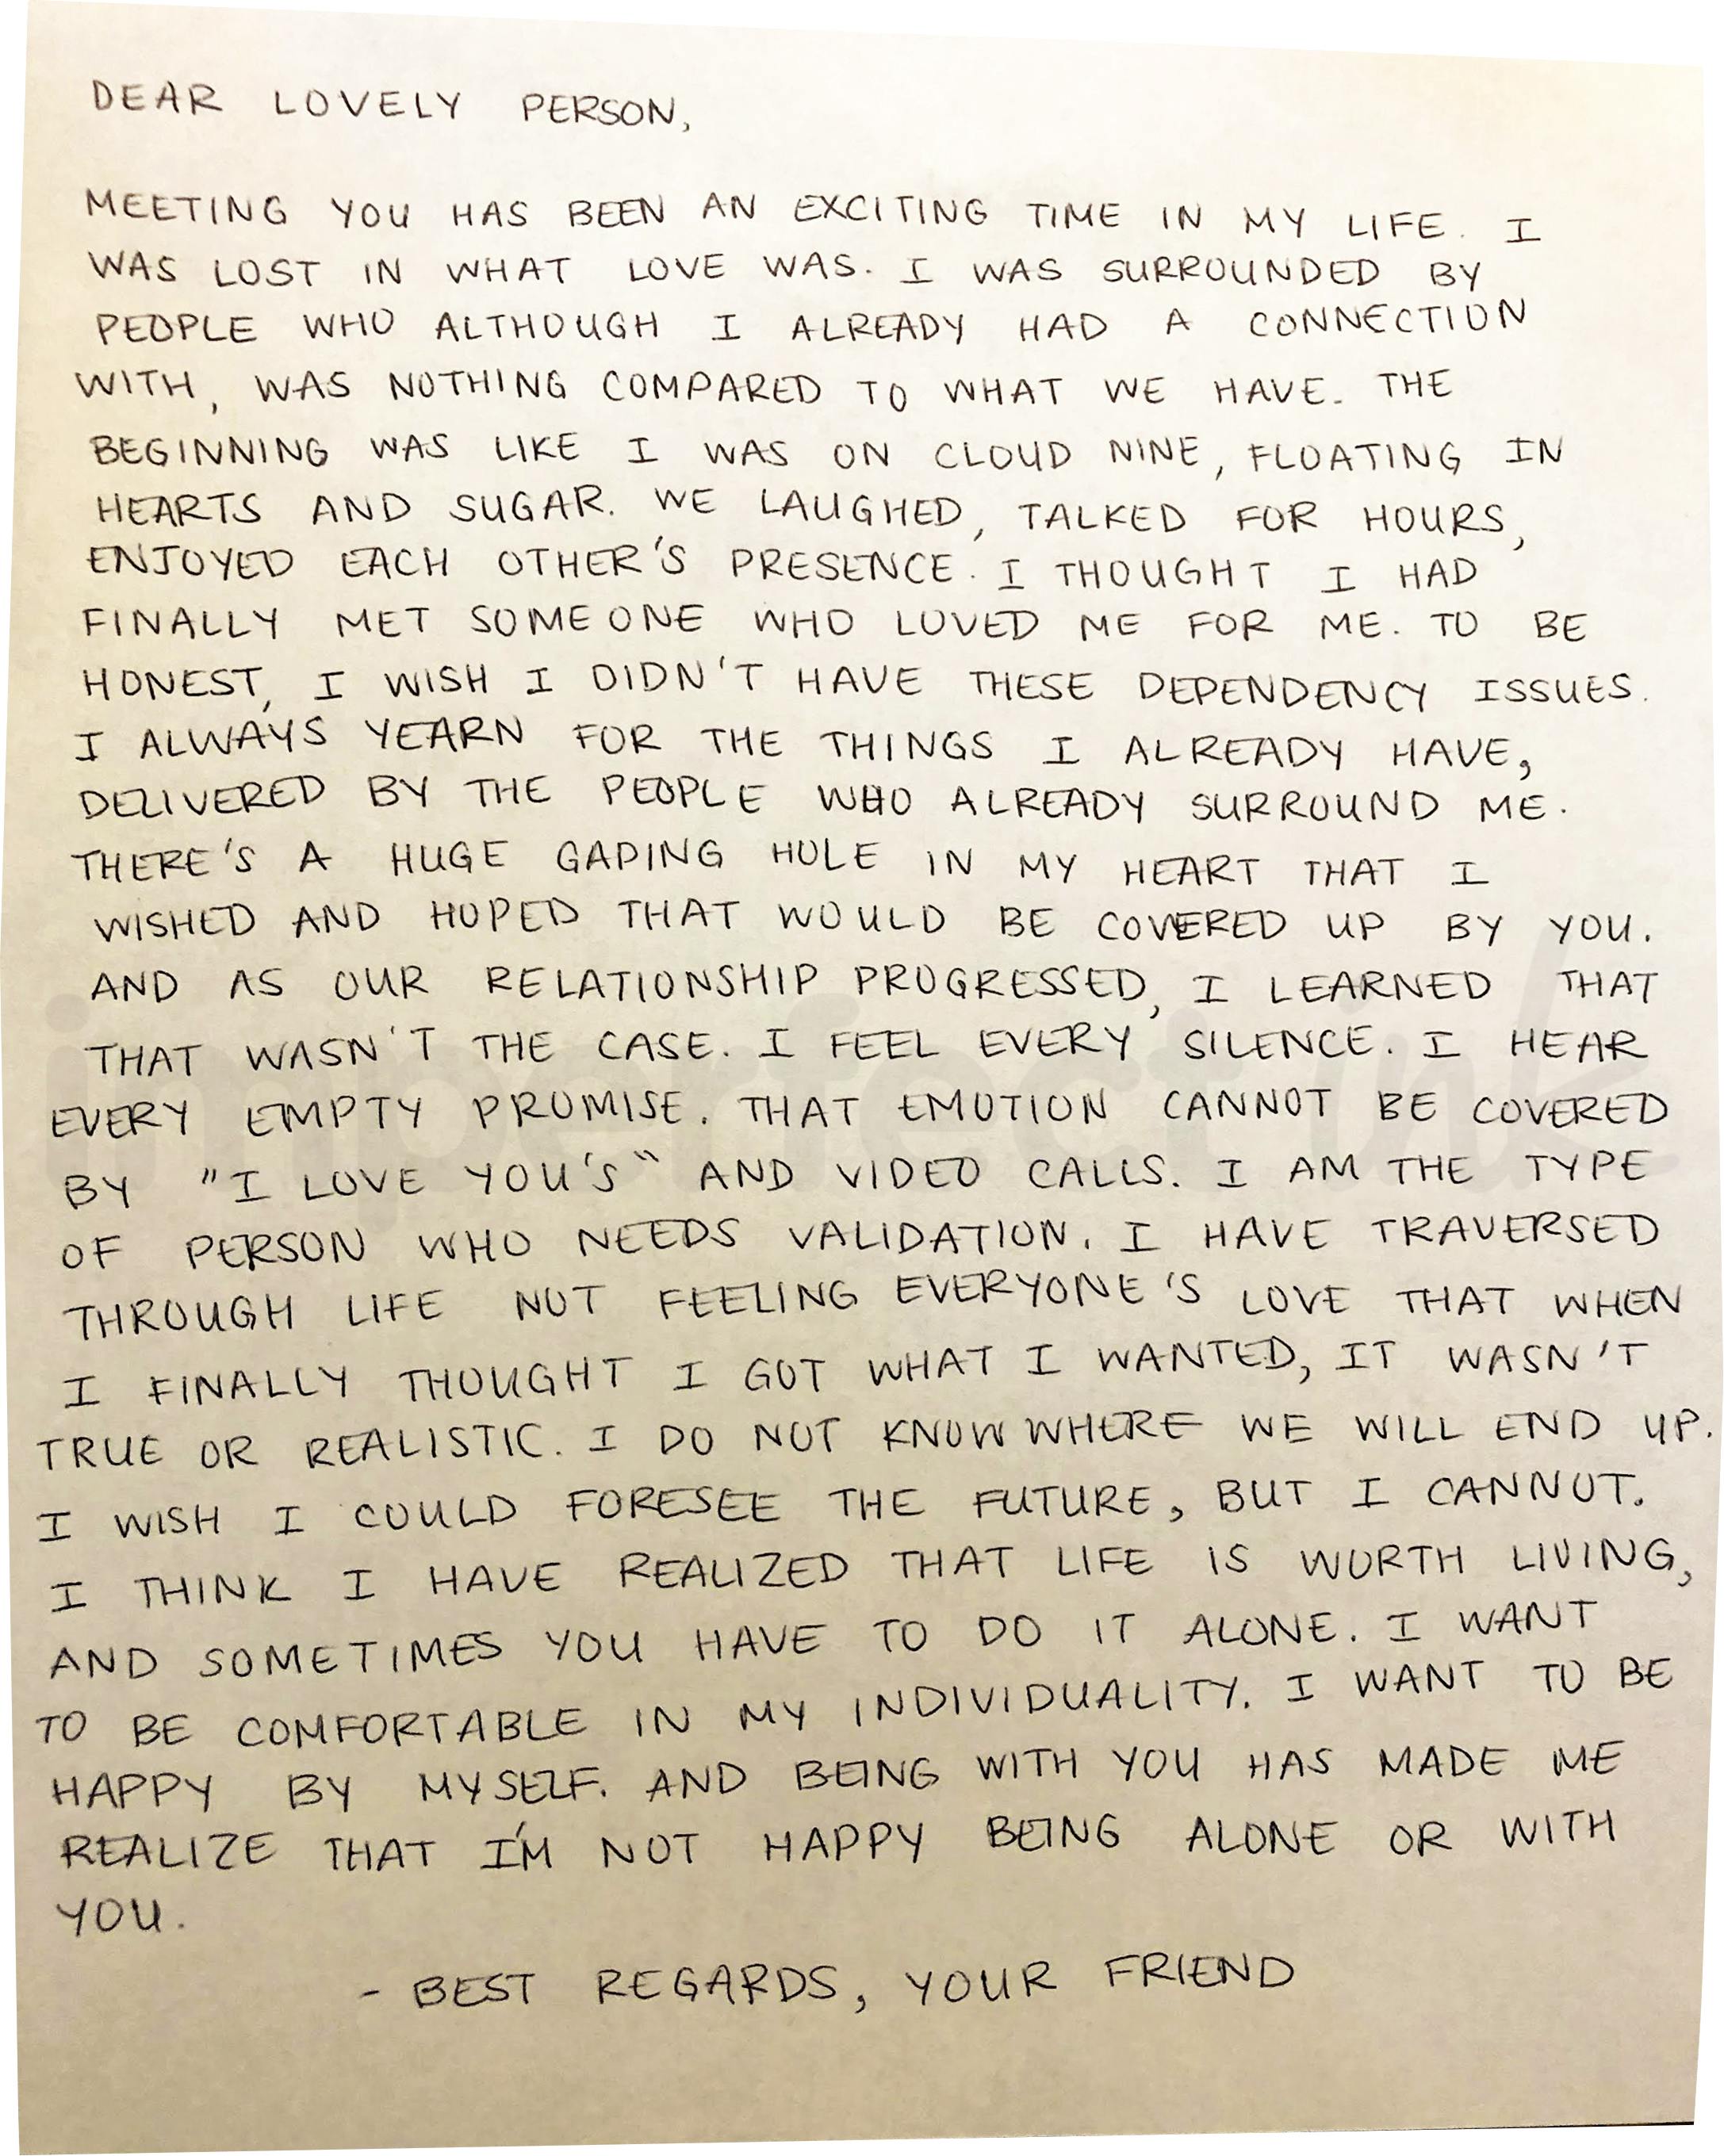 DEAR LOVELY PERSON,
MEETING YOU HAS BEEN AN EXCITING TIME IN MY LIFE. I
WAS LOST IN WHAT LOVE WAS. I WAS SURROUNDED BY
PEOPLE WHO ALTHOUGH I ALREADY HAD A CONNECTION
WITH, WAS NOTHING COMPARED TO WHAT WE HAVE. THE
BEGINNING WAS LIKE I WAS ON CLOUD NINE, FLOATING IN
HEARTS AND SUGAR. WE LAUGHED, TALKED FOR HOURS,
ENJOYED EACH OTHER'S PRESENCE. I THOUGHT I HAD
FINALLY MET SOMEONE WHO LOVED ME FOR ME. TO BE
HONEST, I WISH I DIDN'T HAVE THESE DEPENDENCY ISSUES.
I ALWAYS YEARN FOR THE THINGS I ALREADY HAVE,
DELIVERED BY THE PEOPLE WHO ALREADY SURROUND ME.
THERE'S A HUGE GAPING HOLE IN MY HEART THAT I
WISHED AND HOPED THAT WOULD BE COVERED UP BY YOU.
AND AS OUR RELATIONSHIP PROGRESSED, I LEARNED THAT
THAT WASN'T THE CASE. I FEEL EVERY SILENCE. I HEAR
EVERY EMPTY PROMISE. THAT EMOTION CANNOT BE COVERED
BY "I LOVE YOU'S" AND VIDEO CALLS. I AM THE TYPE
OF PERSON WHO NEEDS VALIDATION. I HAVE TRAVERSED
THROUGH LIFE NOT FEELING EVERYONE'S LOVE THAT WHEN
I FINALLY THOUGHT I GOT WHAT I WANTED, IT WASN'T
TRUE OR REALISTIC. I DO NOT KNOW WHERE WE WILL END UP.
I WISH I COULD FORESEE THE FUTURE, BUT I CANNOT.
I THINK I HAVE REALIZED THAT LIFE IS WORTH LIVING,
AND SOMETIMES YOU HAVE TO DO IT ALONE. I WANT
TO BE COMFORTABLE IN MY INDIVIDUALITY. I WANT TO BE
HAPPY BY MYSELF. AND BEING WITH YOU HAS MADE ME
REALIZE THAT I'M NOT HAPPY BEING ALONE OR WITH
YOU.
- BEST REGARDS, YOUR FRIEND
imperfect ink